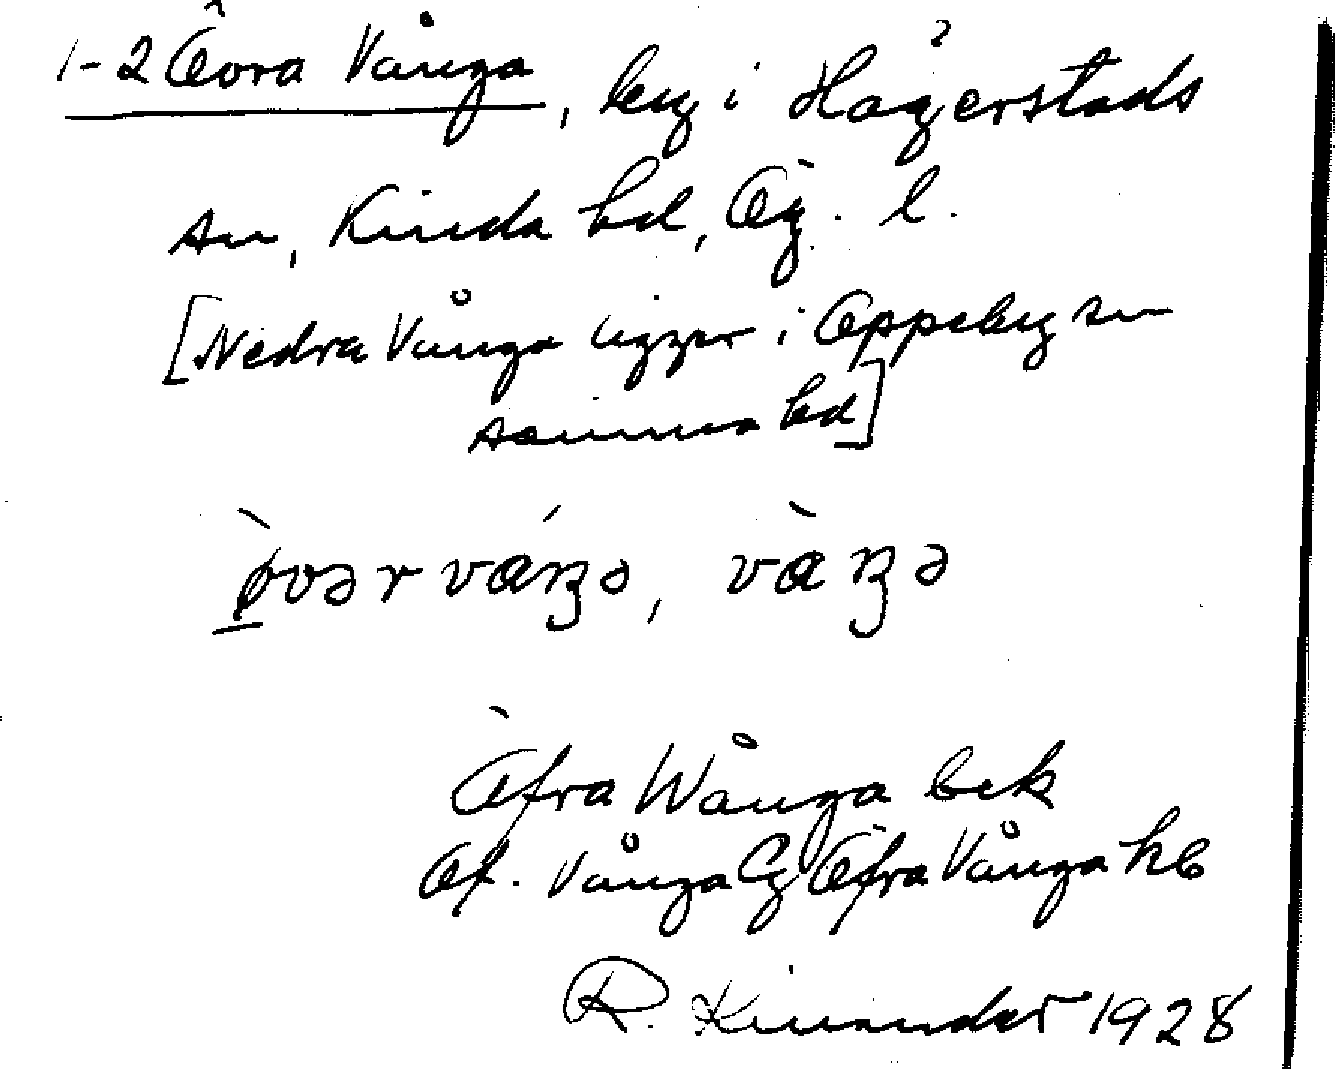 1-2 Övra Vånga, by i Hägerstads
sn, Kinda hd, Ög. l.
[Nedra Vånga ligger i Oppeby sn
samma hd]
ø̀vər váŋə, vàŋə
Öfra Wånga bek
Öf. Vånga Öfra Vånga hb
R. Kinander 1928